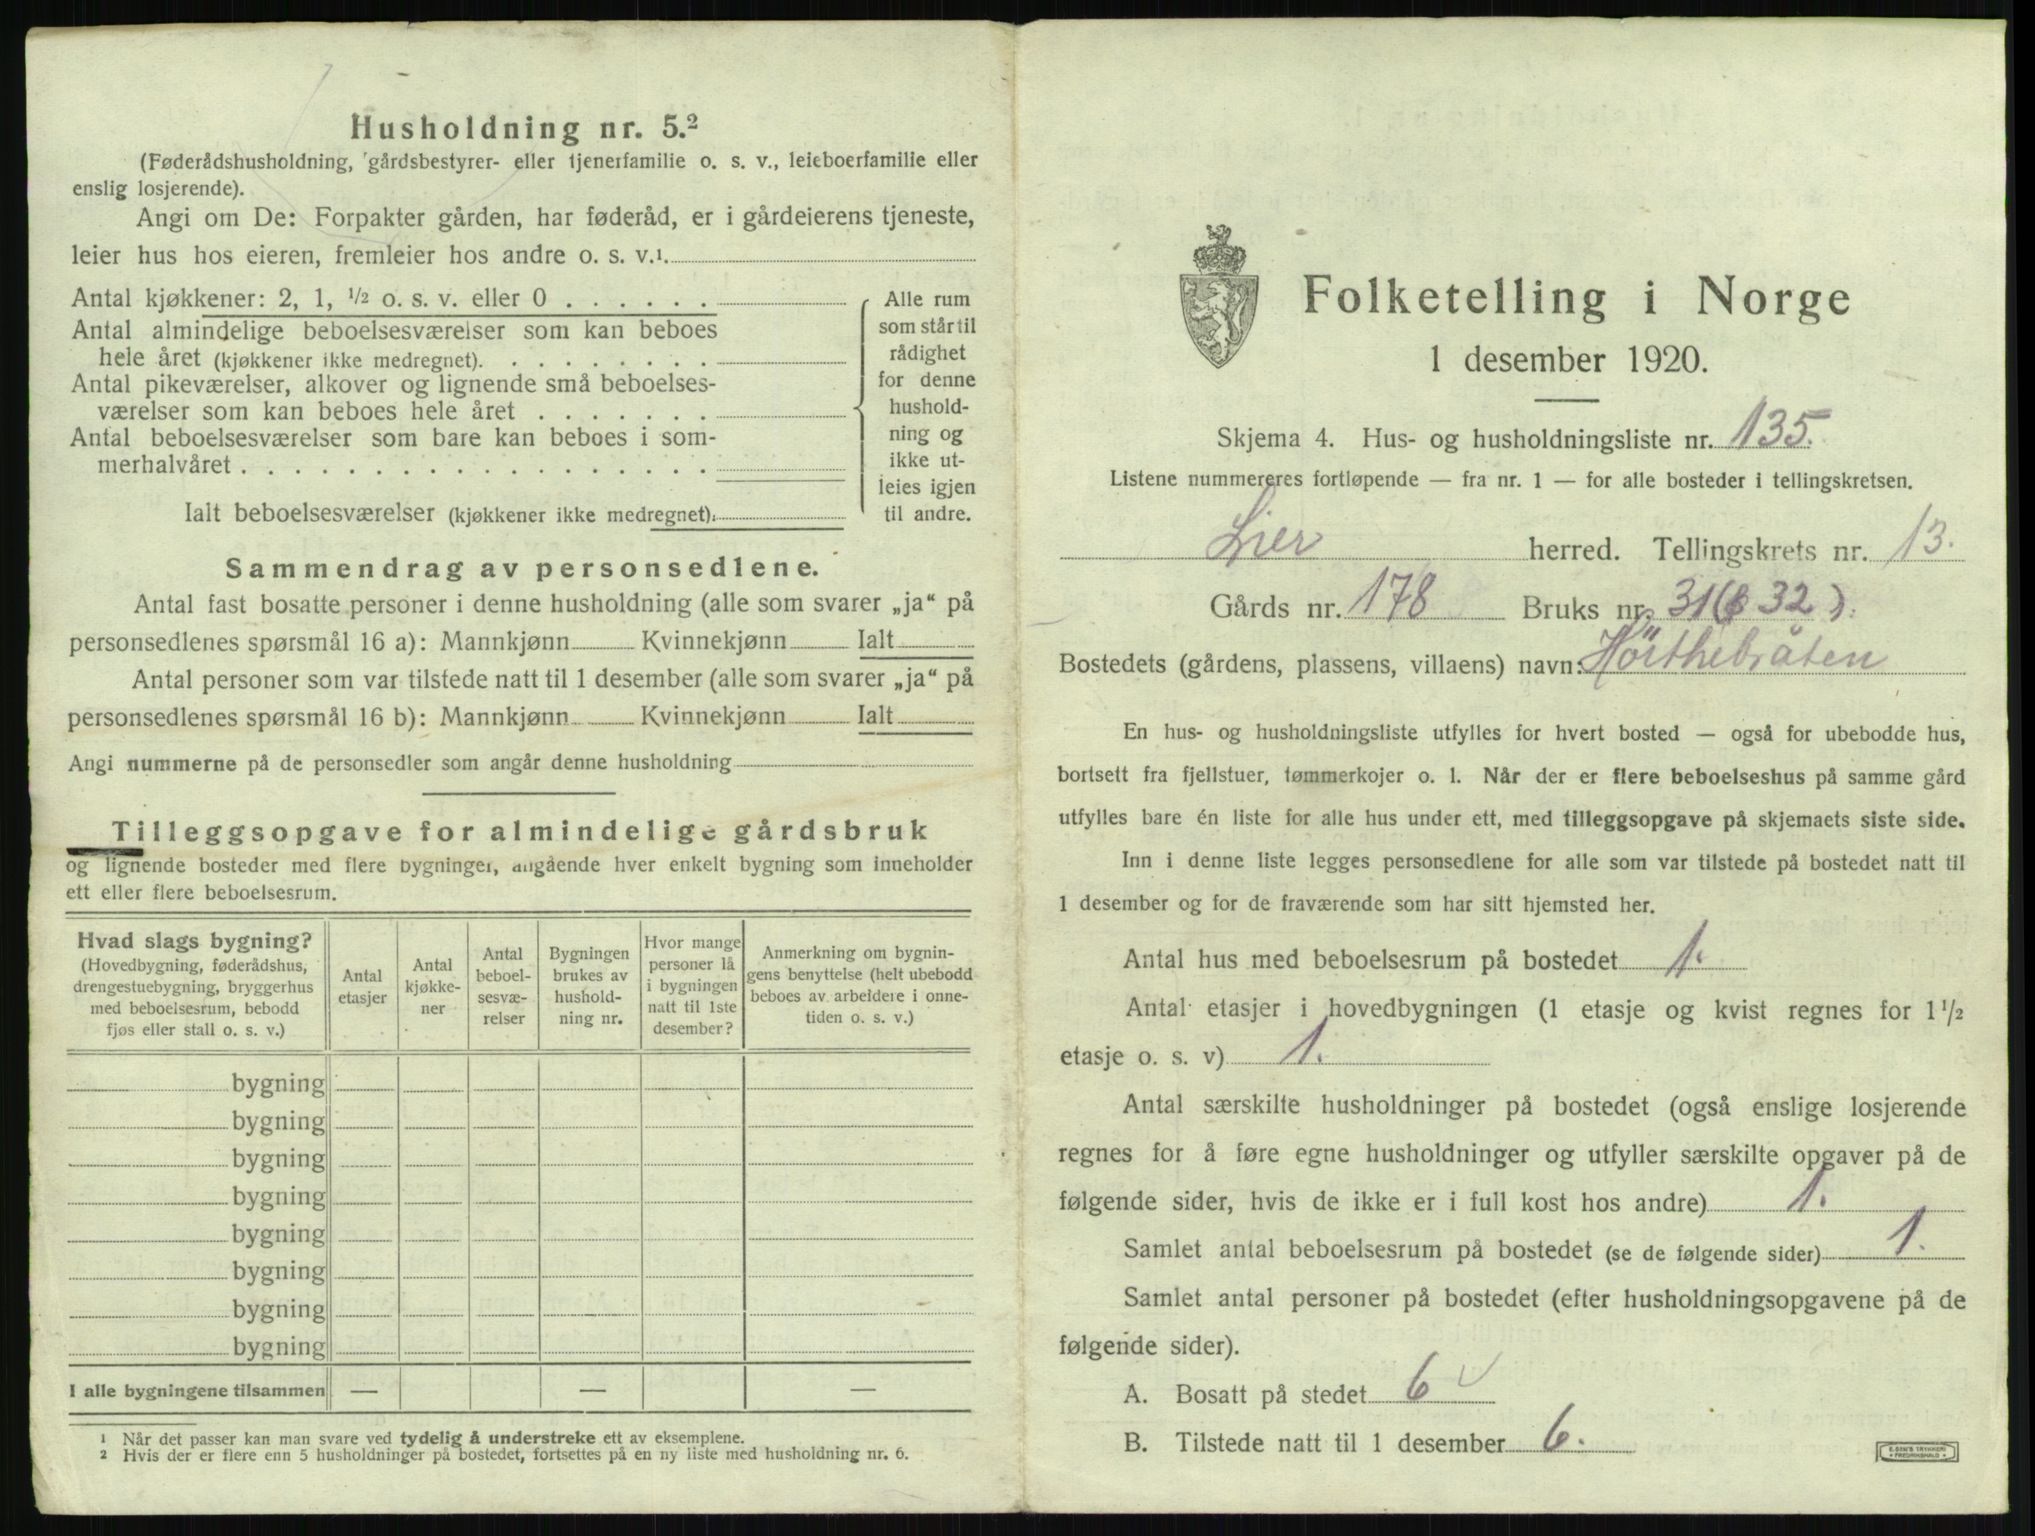 Husholdning nr. 5.²
(Føderådshusholdning, gårdsbestyrer- eller tjenerfamilie o. s. v., leieboerfamilie eller
enslig losjerende).
Angi om De: Forpakter gården, har føderåd, er i gårdeierens tjeneste,
leier hus hos eieren, fremleier hos andre o. s. v.¹
Antal kjøkkener: 2, 1, ½ o. s. v. eller 0 . . . . . .
Antal almindelige beboelsesværelser som kan beboes
hele året (kjøkkener ikke medregnet). . . . . . . . .
Antal pikeværelser, alkover og lignende små beboelses-
værelser som kan beboes hele året . . . . . . .
Antal beboelsesværelser som bare kan beboes i som-
merhalvåret . . . . . . . . . . . . . . . . . .
Ialt beboelsesværelser (kjøkkener ikke medregnet):
Alle rum
som står til
rådighet
for denne
hushold-
ning og
ikke ut-
leies igjen
til andre.
Sammendrag av personsedlene.
Antal fast bosatte personer i denne husholdning (alle som svarer „ja“ på
personsedlenes spørsmål 16 a): Mannkjønn Kvinnekjønn Ialt
Antal personer som var tilstede natt til 1 desember (alle som svarer „ja“ på
personsedlenes spørsmål 16 b): Mannkjønn Kvinnekjønn Ialt
Angi nummerne på de personsedler som angår denne husholdning
Tilleggsopgave for almindelige gårdsbruk
og lignende bosteder med flere bygninger, angående hver enkelt bygning som inneholder
ett eller flere beboelsesrum.
Hvad slags bygning?
(Hovedbygning, føderådshus,
drengestuebygning, bryggerhus
med beboelsesrum, bebodd
fjøs eller stall o. s. v.)
Antal
etasjer
Antal
kjøkke-
ner
Antal
beboel-
sesvæ-
relser
Bygningen
brukes av
hushold-
ning nr.
Hvor mange
personer lå
i bygningen
natt til 1ste
desember?
Anmerkning om bygnin-
gens benyttelse (helt ubebodd
beboes av arbeidere i onne-
tiden o. s. v.)
bygning
bygning
bygning
bygning
bygning
bygning
bygning
bygning
I alle bygningene tilsammen — — —
¹ Når det passer kan man svare ved tydelig å understreke ett av eksemplene.
² Hvis der er flere enn 5 husholdninger på bostedet, fortsettes på en ny liste med husholdning nr. 6.
Folketelling i Norge
1 desember 1920.
Skjema 4. Hus- og husholdningsliste nr. 135.
Listene nummereres fortløpende — fra nr. 1 — for alle bosteder i tellingskretsen.
Lier herred. Tellingskrets nr. 13.
Gårds nr. 178 Bruks nr. 31 (& 32).
Bostedets (gårdens, plassens, villaens) navn: Hörthebråten
En hus- og husholdningsliste utfylles for hvert bosted — også for ubebodde hus,
bortsett fra fjellstuer, tømmerkojer o. l. Når der er flere beboelseshus på samme gård
utfylles bare én liste for alle hus under ett, med tilleggsopgave på skjemaets siste side.
Inn i denne liste legges personsedlene for alle som var tilstede på bostedet natt til
1 desember og for de fraværende som har sitt hjemsted her.
Antal hus med beboelsesrum på bostedet 1.
Antal etasjer i hovedbygningen (1 etasje og kvist regnes for 1½
etasje o. s. v) 1.
Antal særskilte husholdninger på bostedet (også enslige losjerende
regnes for å føre egne husholdninger og utfyller særskilte opgaver på de
følgende sider, hvis de ikke er i full kost hos andre) 1.
Samlet antal beboelsesrum på bostedet (se de følgende sider) 1.
Samlet antal personer på bostedet (efter husholdningsopgavene på de
følgende sider).
A. Bosatt på stedet 6 ✓
B. Tilstede natt til 1 desember 6.
E. SEM'S TRYKKERI
FREDRIKSHALD